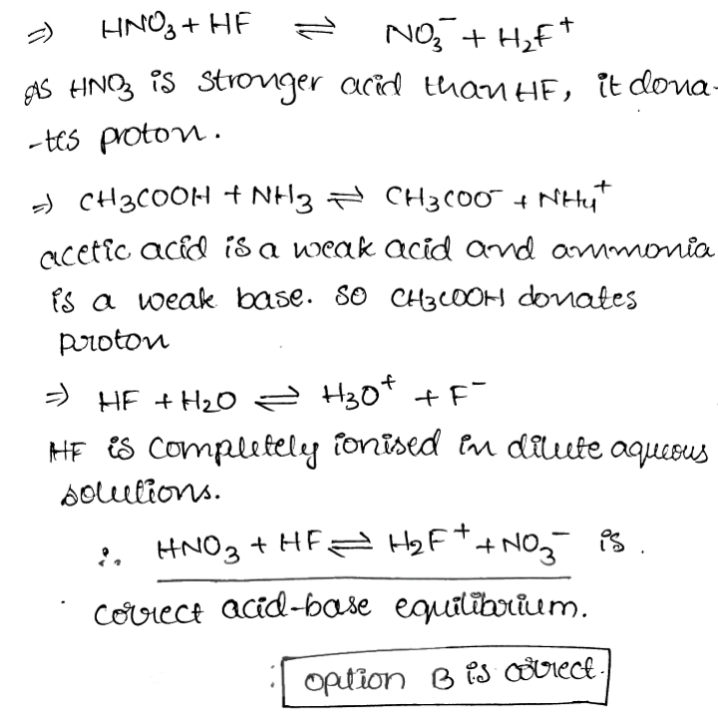 ⇒ HNO₃ + HF ⇌ NO₃⁻ + H₂F⁺
AS HNO₃ is stronger acid than HF, it dona-
-tes proton.
⇒ CH₃COOH + NH₃ ⇌ CH₃COO⁻ + NH₄⁺
acetic acid is a weak acid and ammonia
is a weak base. so CH₃COOH donates
proton
⇒ HF + H₂O ⇌ H₃O⁺ + F⁻
HF is completely ionised in dilute aqueous
solutions.
∴ HNO₃ + HF ⇌ H₂F⁺ + NO₃⁻ is.
correct acid-base equilibrium.
: option B is correct.